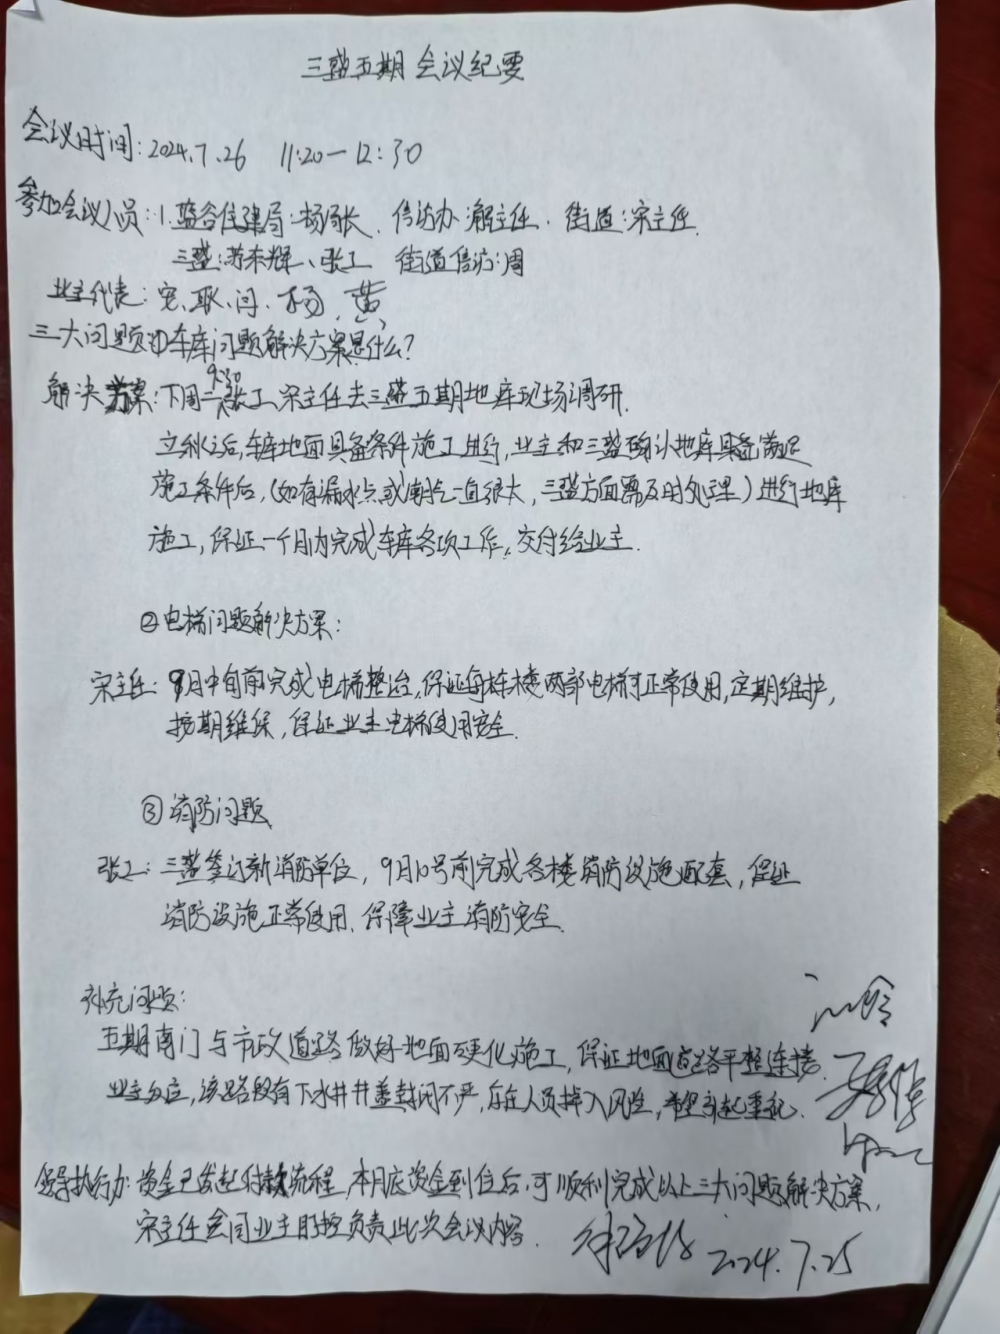 三盛五期会议纪要
会议时间:2024.7.26 11:20-12:30
参加会议人员:1.盐谷住建局:杨局长、信访办:谢主任、街道:宋主任
三盛:苏东辉、张工 街道信访:周
业主代表:宋、耿、闫、杨、黄
三大问题①车库问题解决方案是什么?
9:30
解决方案:下周一张工、宋主任去三盛五期地库现场调研.
立秋之后,车库地面具备条件施工进行,业主和三盛确认地库具备满足
施工条件后,(如有漏水点或潮气一直很大,三盛方面需及时处理)进行地库
施工,保证一个月内完成车库各项工作,交付给业主.
②电梯问题解决方案:
宋主任:9月中旬前完成电梯整治,保证每栋楼两部电梯可正常使用,定期维护,
按期维保,保证业主电梯使用安全.
③消防问题
张工:三盛签订新消防单位,9月10号前完成各楼消防设施配套,保证
消防设施正常使用,保障业主消防安全.
补充问题:
五期南门与市政道路做好地面硬化施工,保证地面道路平整连接.
业主反应,该路段有下水井井盖封闭不严,存在人员掉入风险,希望引起重视.
领导执行办:资金已发起付款流程,本月底资金到位后,可顺利完成以上三大问题解决方案,
宋主任会同业主盯控负责此次会议内容.
2024.7.25